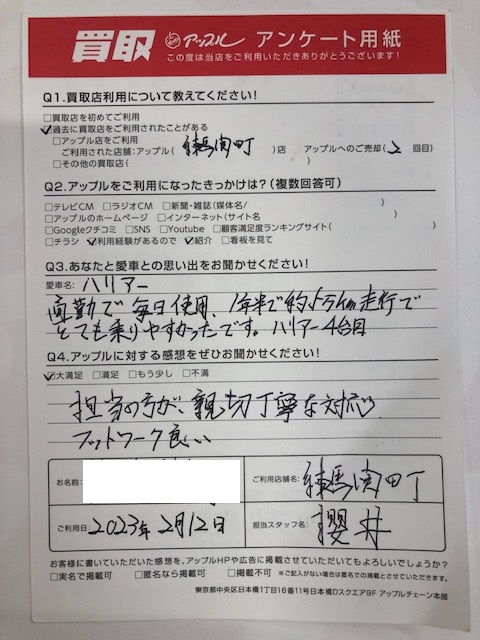 買取 アップル アンケート用紙
この度は当店をご利用いただきありがとうございます!
Q1.買取店利用について教えてください!
□買取店を初めてご利用
☑過去に買取店をご利用されたことがある
□アップル店をご利用
ご利用された店舗:アップル( 練馬関町 )店 アップルへのご売却( 2 回目)
□その他の買取店( )
Q2.アップルをご利用になったきっかけは?(複数回答可)
□テレビCM □ラジオCM □新聞・雑誌(媒体名/ )
□アップルのホームページ □インターネット(サイト名 )
□Googleクチコミ □SNS □Youtube □顧客満足度ランキングサイト( )
□チラシ ☑利用経験があるので ☑紹介 □看板を見て
Q3.あなたと愛車との思い出をお聞かせください!
愛車名: ハリアー
通勤で毎日使用、1年半で約5万km走行で
とても乗りやすかったです。ハリアー4台目
Q4.アップルに対する感想をぜひお聞かせください!
☑大満足 □満足 □もう少し □不満
担当の方が、親切丁寧な対応
フットワーク良い
お名前: ご利用店舗名: 練馬関町
ご利用日: 2023年2月12日 担当スタッフ名: 櫻井
お客様に書いていただいた感想を、アップルHPや広告に掲載させていただいてもよろしいでしょうか?
□実名で掲載可 □匿名なら掲載可 □掲載不可 ※ご記入がない場合は匿名での掲載とさせていただきます。
東京都中央区日本橋1丁目16番11号日本橋Dスクエア9F アップルチェーン本部